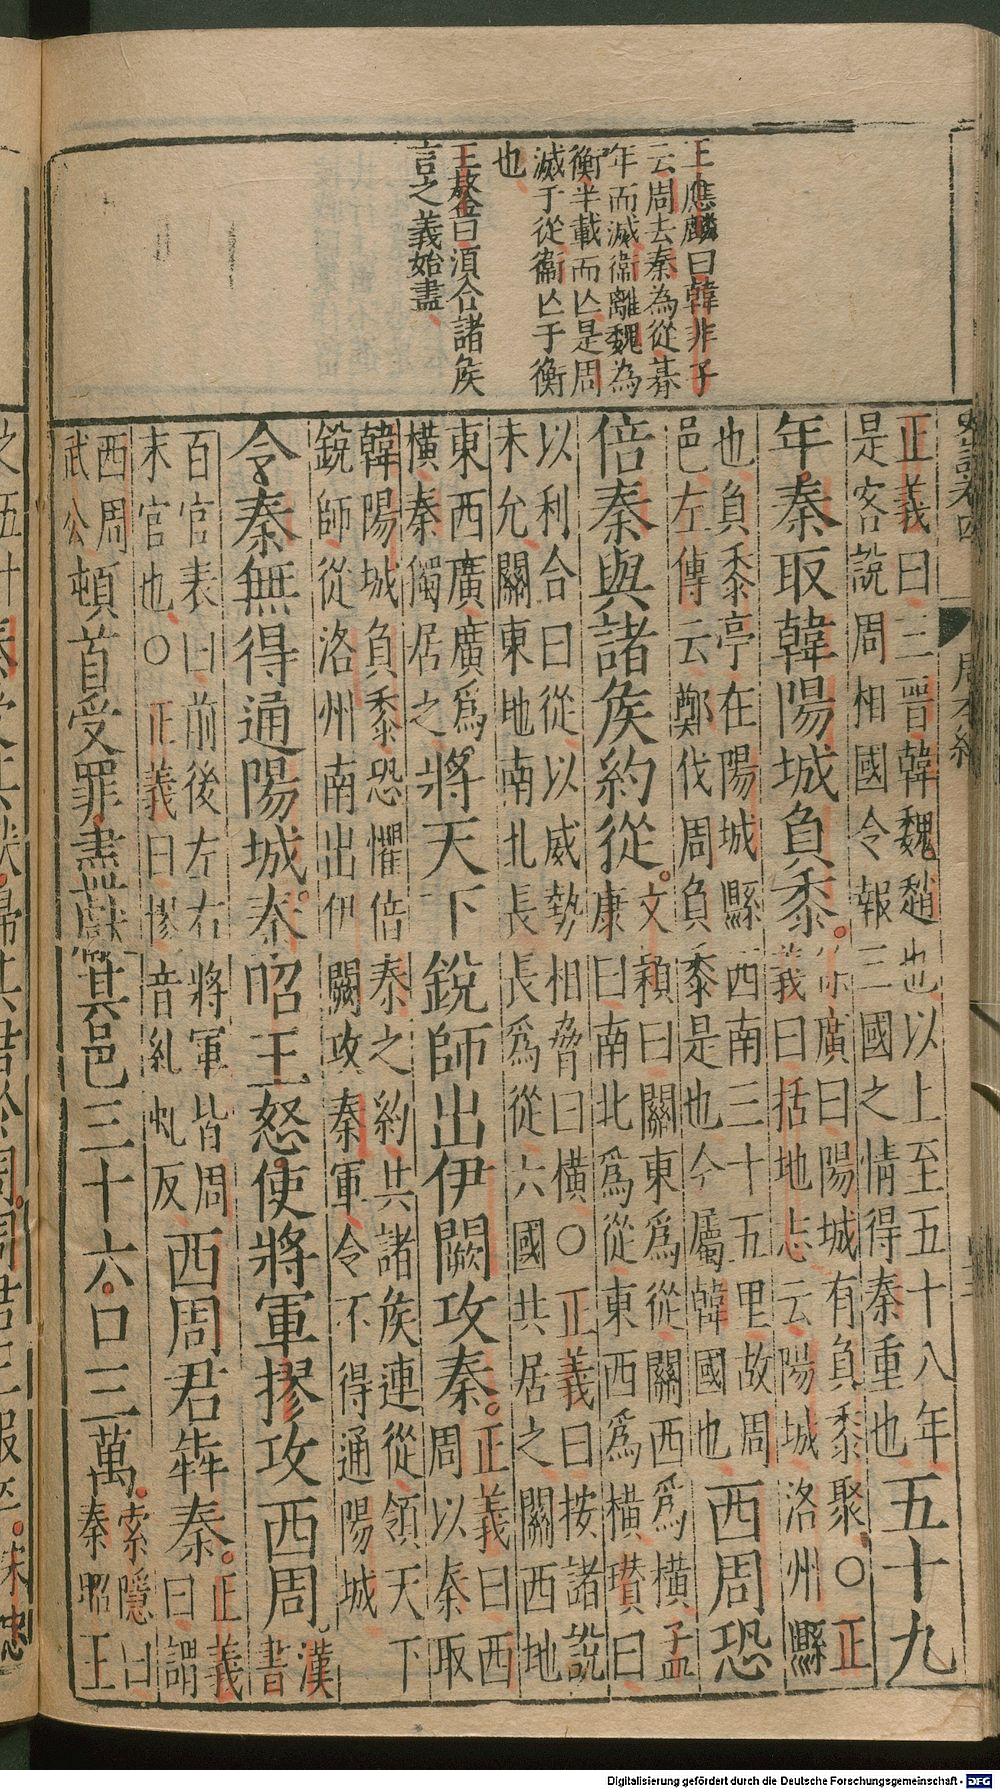 王應麟曰韓非子
云周去秦為從朞
年而滅衛離魏為
衡半載而亾是周
滅于從衞亾于衡
也
王鏊曰湏合諸矦
言之義始盡
正義曰三晋韓魏趙也以上至五十八年
是客說周相國令報三國之情得秦重也
五十九
年秦取韓陽城負黍
徐廣曰陽城有負黍聚○正
義曰括地志云陽城洛州縣
也負黍亭在陽城縣西南三十五里故周
邑左傳云鄭伐周負黍是也今屬韓國也
西周恐
倍秦與諸矦約從
文頴曰關東爲從關西爲橫孟
康曰南北爲從東西爲橫瓉曰
以利合曰從以威勢相脅曰橫○正義曰按諸說
未允關東地南北長長爲從六國共居之關西地
東西廣廣爲
橫秦獨居之
將天下銳師出伊闕攻秦
正義曰西
周以秦取
韓陽城負黍恐懼倍秦之約共諸矦連從領天下
銳師從洛州南出伊闕攻秦軍令不得通陽城
令秦無得通陽城秦昭王怒使將軍摎攻西周
漢
書
百官表曰前後左右將軍皆周
末官也○正義曰摎音紀虬反
西周君犇秦
正義
曰謂
西周
武公
頓首受罪盡獻其邑三十六口三萬
索隱曰
秦昭王
史記卷四
周本紀
Digitalisierung gefördert durch die Deutsche Forschungsgemeinschaft - DFG